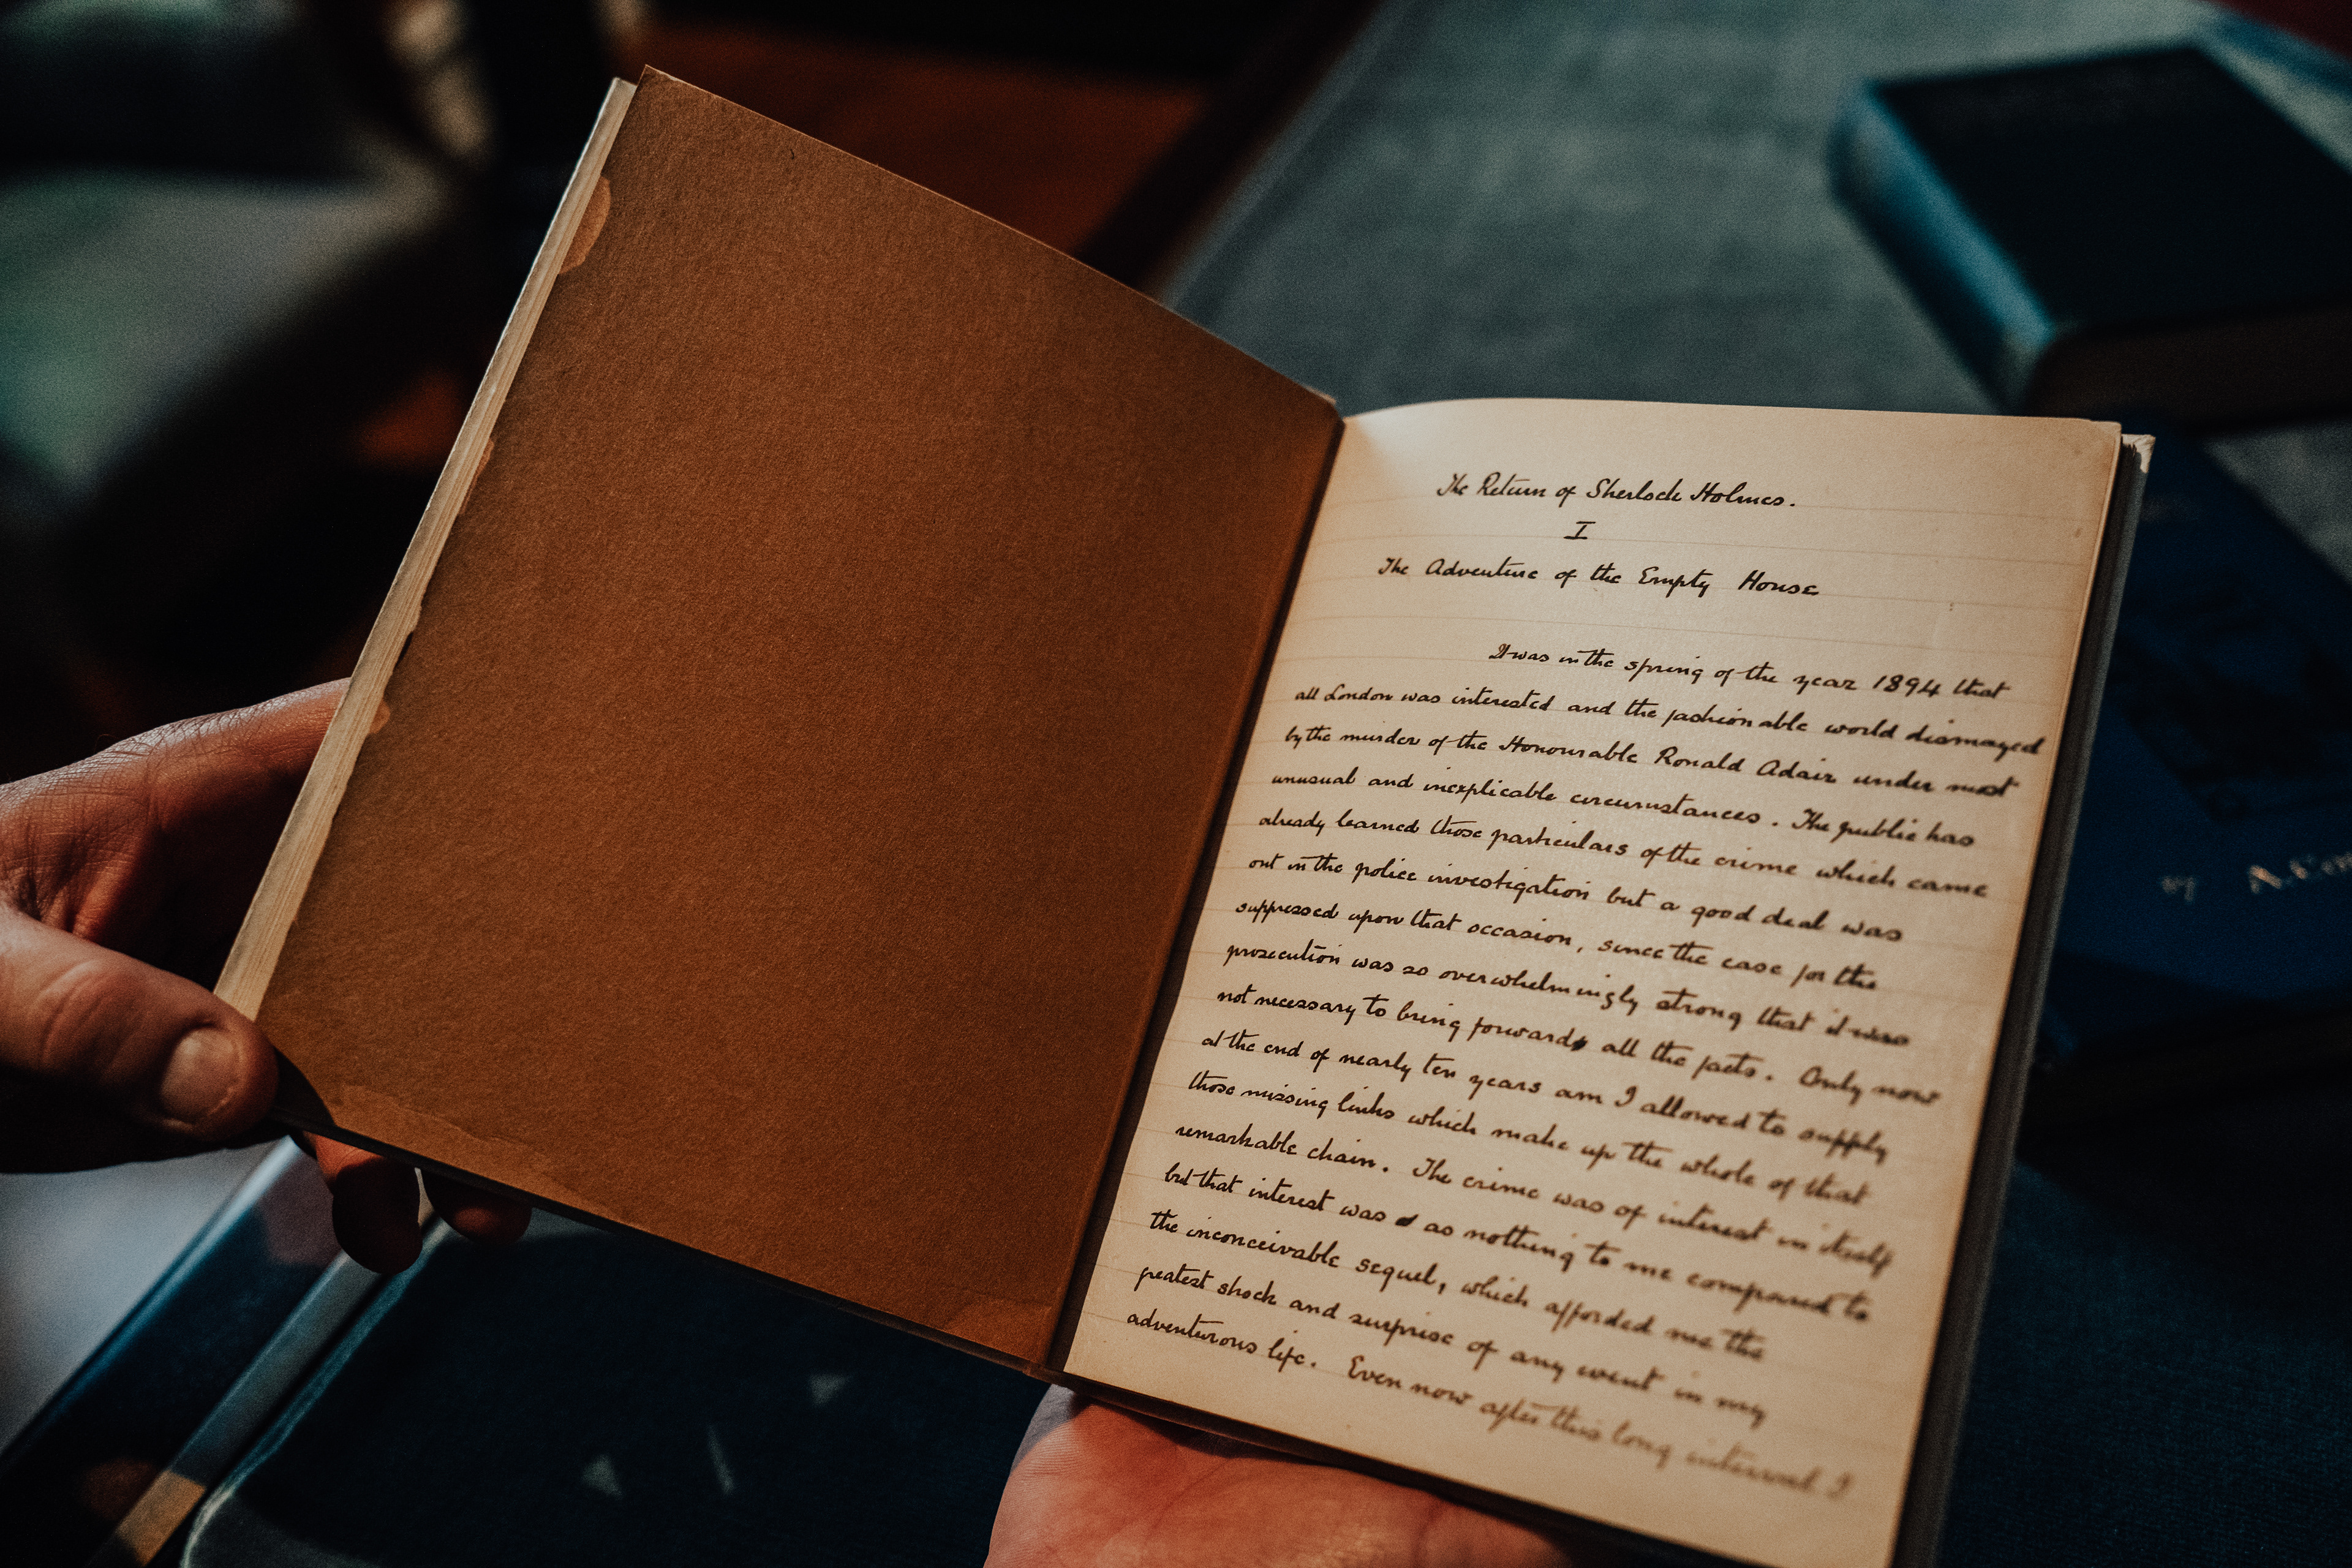 The Return of Sherlock Holmes.
I
The Adventure of the Empty House
It was in the spring of the year 1894 that
all London was interested and the fashionable world dismayed
by the murder of the Honourable Ronald Adair under most
unusual and inexplicable circumstances. The public has
already learned those particulars of the crime which came
out in the police investigation but a good deal was
suppressed upon that occasion, since the case for the
prosecution was so overwhelmingly strong that it was
not necessary to bring forward all the facts. Only now
at the end of nearly ten years am I allowed to supply
those missing links which make up the whole of that
remarkable chain. The crime was of interest in itself
but that interest was as nothing to me compared to
the inconceivable sequel, which afforded me the
greatest shock and surprise of any event in my
adventurous life. Even now after this long interval I